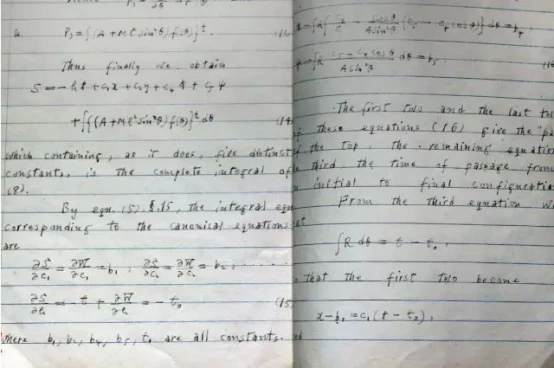 P₃ = {(A + Ml²sin²θ) f(θ)}^½. (14
Thus finally we obtain
S = -ht + c₁x + c₂y + c₄ϕ + c₅ψ
+ ∫{(A + Ml²sin²θ) f(θ)}^½ dθ (14
which containing, as it does, five distinct
constants, is the complete integral of
(8).
By eqn. (5). §.15, the integral equ
corresponding to the canonical equations
are
∂S/∂c₁ = ∂W/∂c₁ = b₁, ∂S/∂c₂ = ∂W/∂c₂ = b₂, ......
∂S/∂h = -t + ∂W/∂h = -t₀ (15
where b₁, b₂, b₄, b₅, t₀ are all constants.
dθ = b₅. (16
The first two and the last two
these equations (16) give the
the top, the remaining equation
third, the time of passage from
initial to final configuration
From the third equation we
∫R dθ = t - t₀,
that the first two become
x - b₁ = c₁(t - t₀),